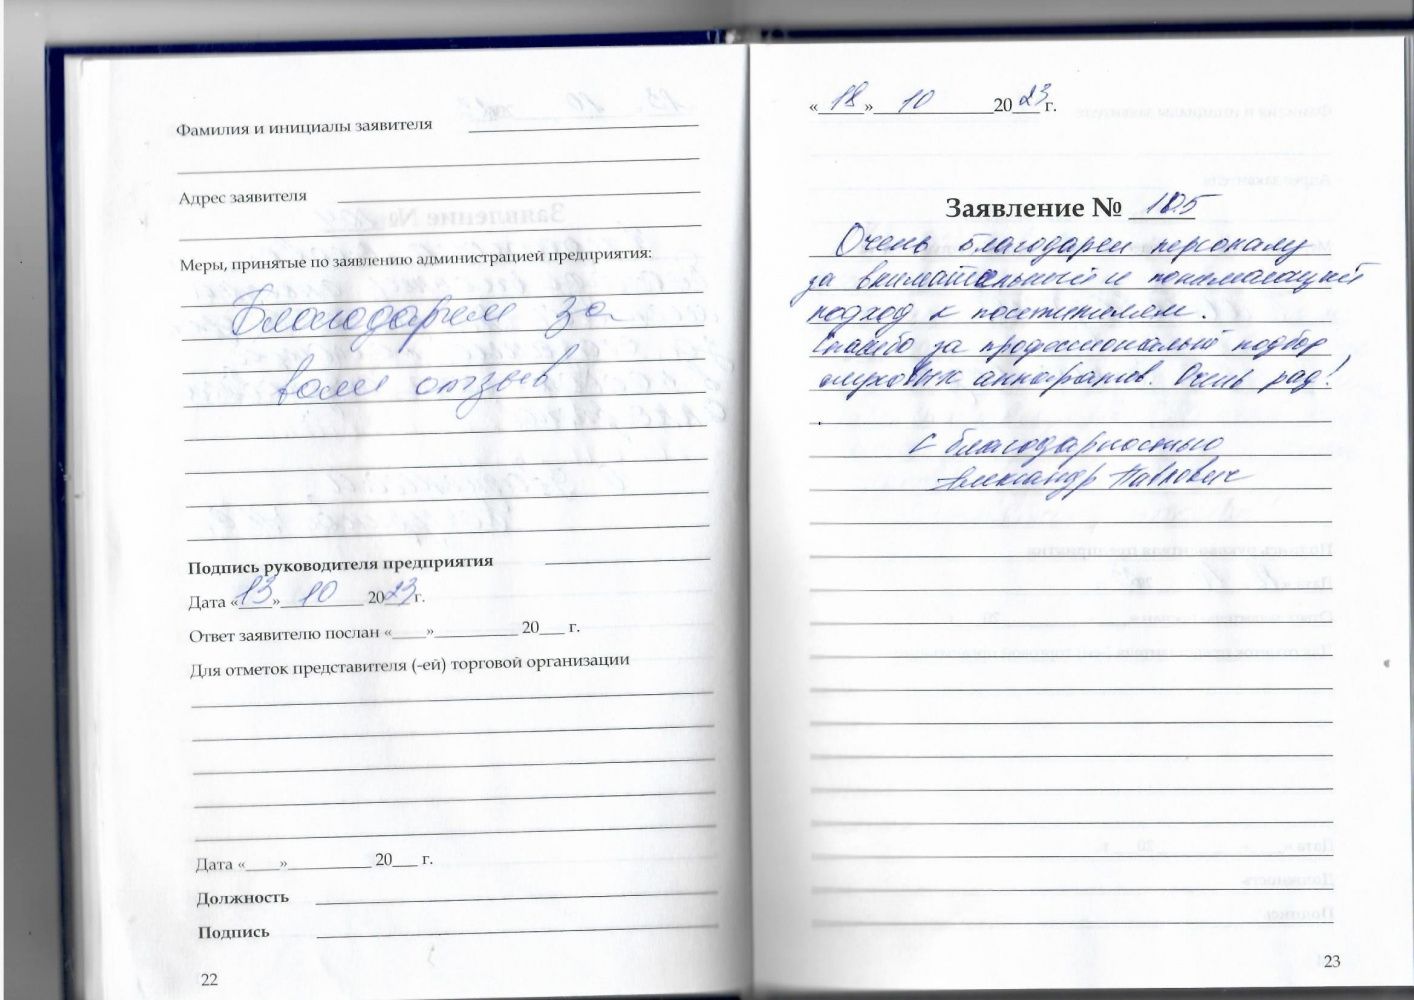 Фамилия и инициалы заявителя
Адрес заявителя
Меры, принятые по заявлению администрацией предприятия:
Благодарим за
ваш отзыв
Подпись руководителя предприятия
Дата «13» 10 2023г.
Ответ заявителю послан «____»__________ 20___ г.
Для отметок представителя (-ей) торговой организации
Дата «____»__________ 20___ г.
Должность
Подпись
22
«18» 10 2023г.
Заявление № 105
Очень благодарен персоналу
за внимательный и понимающий
подход к посетителям.
Спасибо за профессиональный подбор
слуховых аппаратов. Очень рад!
С благодарностью
Александр Павлович
23